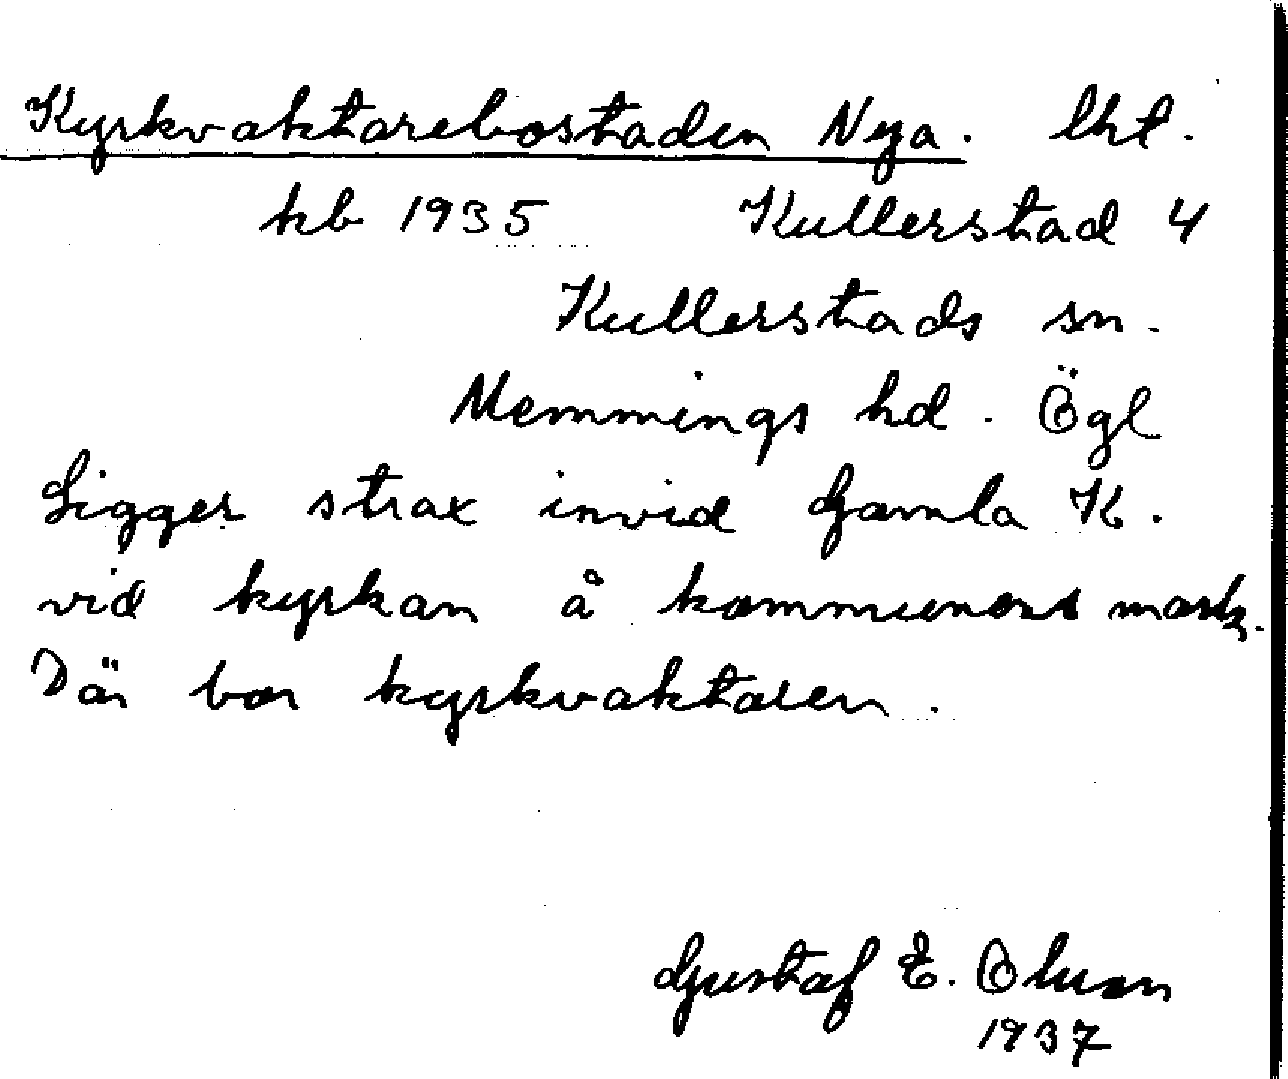 Kyrkvaktarebostaden Nya. lht.
kb 1935 Kullerstad 4
Kullerstads sn.
Memmings hd. Ögl
Ligger strax invid Gamla K.
vid kyrkan å kommunens mark.
Där bor kyrkvaktaren.
Gustaf E. Olsson
1937